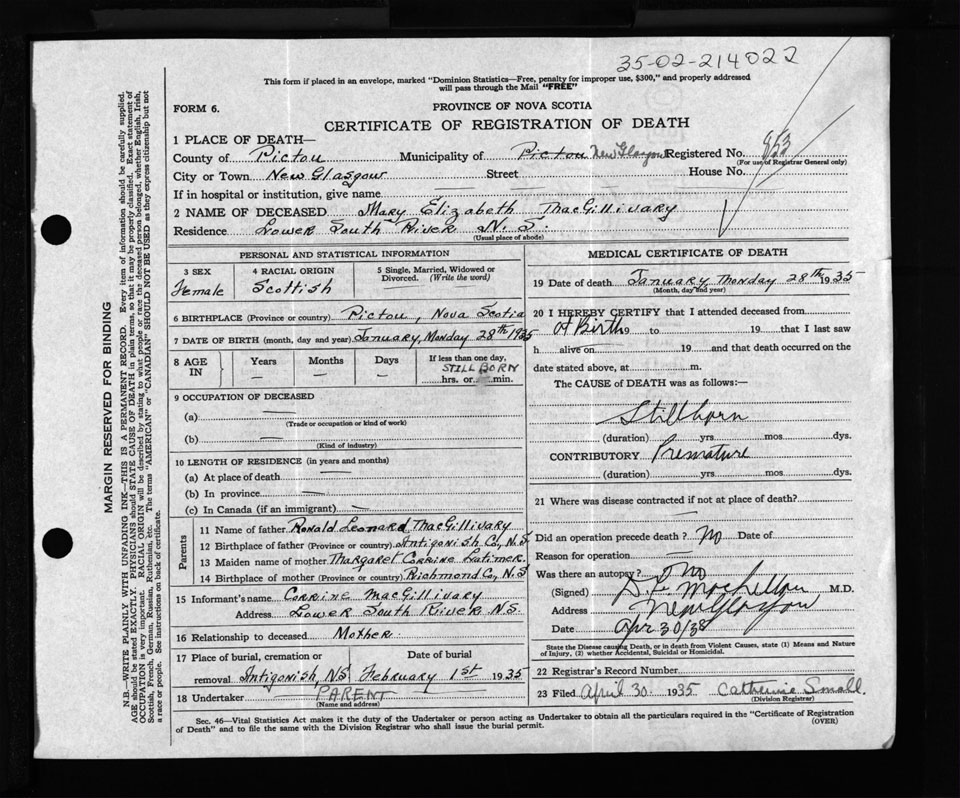 35-02-214022
This form if placed in an envelope, marked "Dominion Statistics—Free, penalty for improper use, $300," and properly addressed
will pass through the Mail "FREE"
FORM 6.
PROVINCE OF NOVA SCOTIA
CERTIFICATE OF REGISTRATION OF DEATH
1 PLACE OF DEATH—
County of Pictou Municipality of Pictou New Glasgow Registered No. 853
(For use of Registrar General only)
City or Town New Glasgow Street House No.
If in hospital or institution, give name
2 NAME OF DECEASED Mary Elizabeth MacGillivary
Residence Lower South River N.S.
(Usual place of abode)
PERSONAL AND STATISTICAL INFORMATION
3 SEX Female
4 RACIAL ORIGIN Scottish
5 Single, Married, Widowed or Divorced. (Write the word)
6 BIRTHPLACE (Province or country) Pictou, Nova Scotia
7 DATE OF BIRTH (month, day and year) January, Monday 28th 1935
8 AGE IN Years — Months — Days — If less than one day, STILL BORN hrs. or min.
9 OCCUPATION OF DECEASED
(a) —
(Trade or occupation or kind of work)
(b) —
(Kind of industry)
10 LENGTH OF RESIDENCE (in years and months)
(a) At place of death
(b) In province —
(c) In Canada (if an immigrant) —
Parents
11 Name of father Ronald Leonard MacGillivary
12 Birthplace of father (Province or country) Antigonish Co, N.S
13 Maiden name of mother Margaret Corrine Latimer
14 Birthplace of mother (Province or country) Richmond Co, N.S
15 Informant's name Corrine MacGillivary
Address Lower South River N.S.
16 Relationship to deceased Mother.
17 Place of burial, cremation or removal Antigonish, N.S Date of burial February 1st 1935
18 Undertaker PARENT
(Name and address)
MEDICAL CERTIFICATE OF DEATH
19 Date of death January Monday 28th 1935
(Month, day and year)
20 I HEREBY CERTIFY that I attended deceased from
At Birth 19 to 19 that I last saw
h alive on 19 and that death occurred on the
date stated above, at m.
The CAUSE of DEATH was as follows:—
Stillborn
(duration) yrs. mos. dys.
CONTRIBUTORY Premature
(duration) yrs. mos. dys.
21 Where was disease contracted if not at place of death?
Did an operation precede death? No Date of
Reason for operation —
Was there an autopsy? No
(Signed) M.D.
Address New Glasgow
Date Apr 30/35
State the Disease causing Death, or in death from Violent Causes, state (1) Means and Nature
of Injury, (2) whether Accidental, Suicidal or Homicidal.
22 Registrar's Record Number
23 Filed April 30 1935 Catherine Small.
(Division Registrar)
Sec. 46—Vital Statistics Act makes it the duty of the Undertaker or person acting as Undertaker to obtain all the particulars required in the "Certificate of Registration
of Death" and to file the same with the Division Registrar who shall issue the burial permit.
(OVER)
MARGIN RESERVED FOR BINDING
N.B.—WRITE PLAINLY WITH UNFADING INK—THIS IS A PERMANENT RECORD. Every item of information should be carefully supplied.
AGE should be stated EXACTLY. PHYSICIANS should STATE CAUSE OF DEATH in plain terms, so that it may be properly classified. Exact statement of
OCCUPATION is very important. RACIAL ORIGIN will be described by stating to what people or race the deceased person belonged, whether English, Irish,
Scottish, French, German, Russian, Ruthenian, etc. The terms "AMERICAN" or "CANADIAN" SHOULD NOT BE USED as they express citizenship but not
a race or people. See instructions on back of certificate.